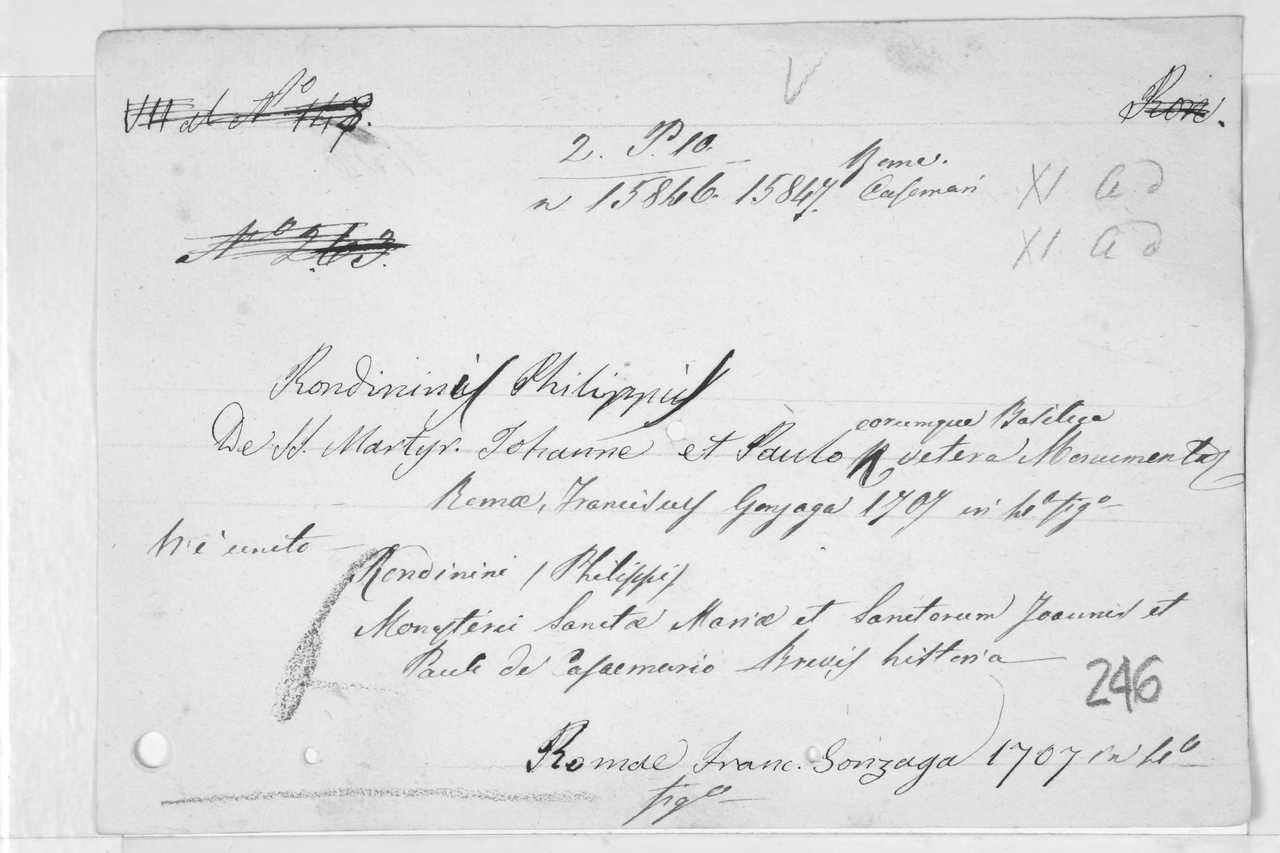 VII al Nº 148.
Ron.
2. P. 10.
n 15846. 15847. Roma.
Casemari
XI a d
Nº 263.
XI a d
Rondininis Philippis
De SS. Martyr. Johanne et Paulo eorumque Basilica vetera Monumenta
Romæ, Franciscus Gonzaga 1707 in 4º figº
Vi è unito
Rondinini / Philippis
Monasterii Sanctæ Mariæ et Sanctorum Joannis et
Pauli de Casaemario Brevis historia
246
Romae Franc. Gonzaga 1707 in 4º
figº